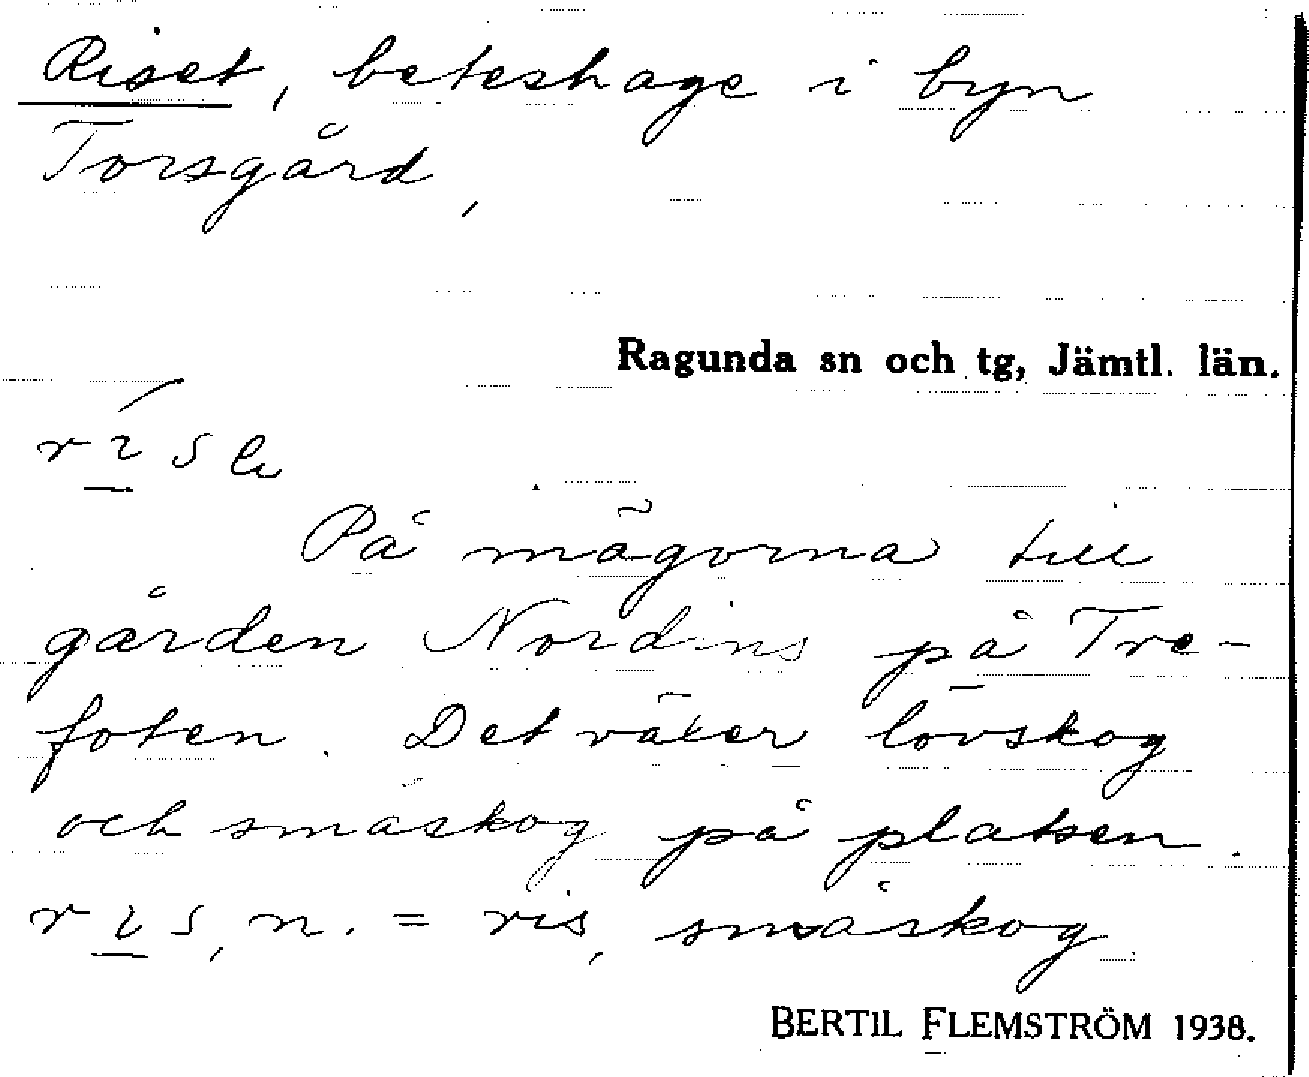 Riset, beteshage i byn
Torsgård,
Ragunda sn och tg, Jämtl. län.
På mägorna till
gården Nordins på Tre-
foten. Det växer lövskog
och småskog på platsen.
r i s, n. = ris, småskog
BERTIL FLEMSTRÖM 1938.